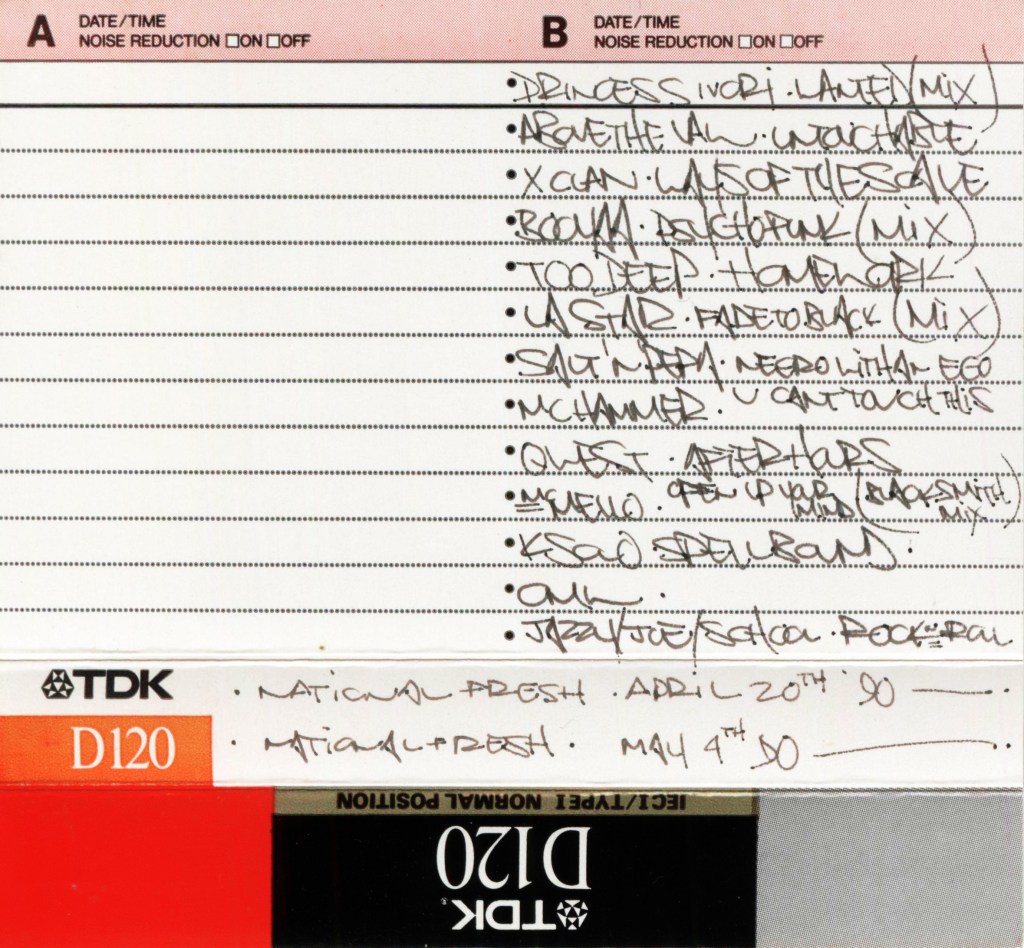 A DATE/TIME
NOISE REDUCTION □ON □OFF
B DATE/TIME
NOISE REDUCTION □ON □OFF
•PRINCESS IVORI. WANTED (MIX)
•ABOVE THE LAW. UNTOUCHABLE
•X CLAN. WAYS OF THE SCALE
•BOOYAA. PSYCHO FUNK (MIX)
•TOO DEEP. HOMEWORK
•LA STAR. FADE TO BLACK (MIX)
•SALT 'N' PEPA. NEGRO WITH AN EGO
•MC HAMMER. U CANT TOUCH THIS
•QUEST. AFTER HOURS
•MC MELLO. OPEN UP YOUR MIND (BLACKSMITH MIX)
•K SOLO SPELLBOUND.
•
•JAZZY/JOE/SCHOOL. ROCK N ROLL
TDK . NATIONAL FRESH . APRIL 20TH 90
D120 . NATIONAL FRESH . MAY 4TH 90
IECI/TYPEI NORMAL POSITION
D120
TDK